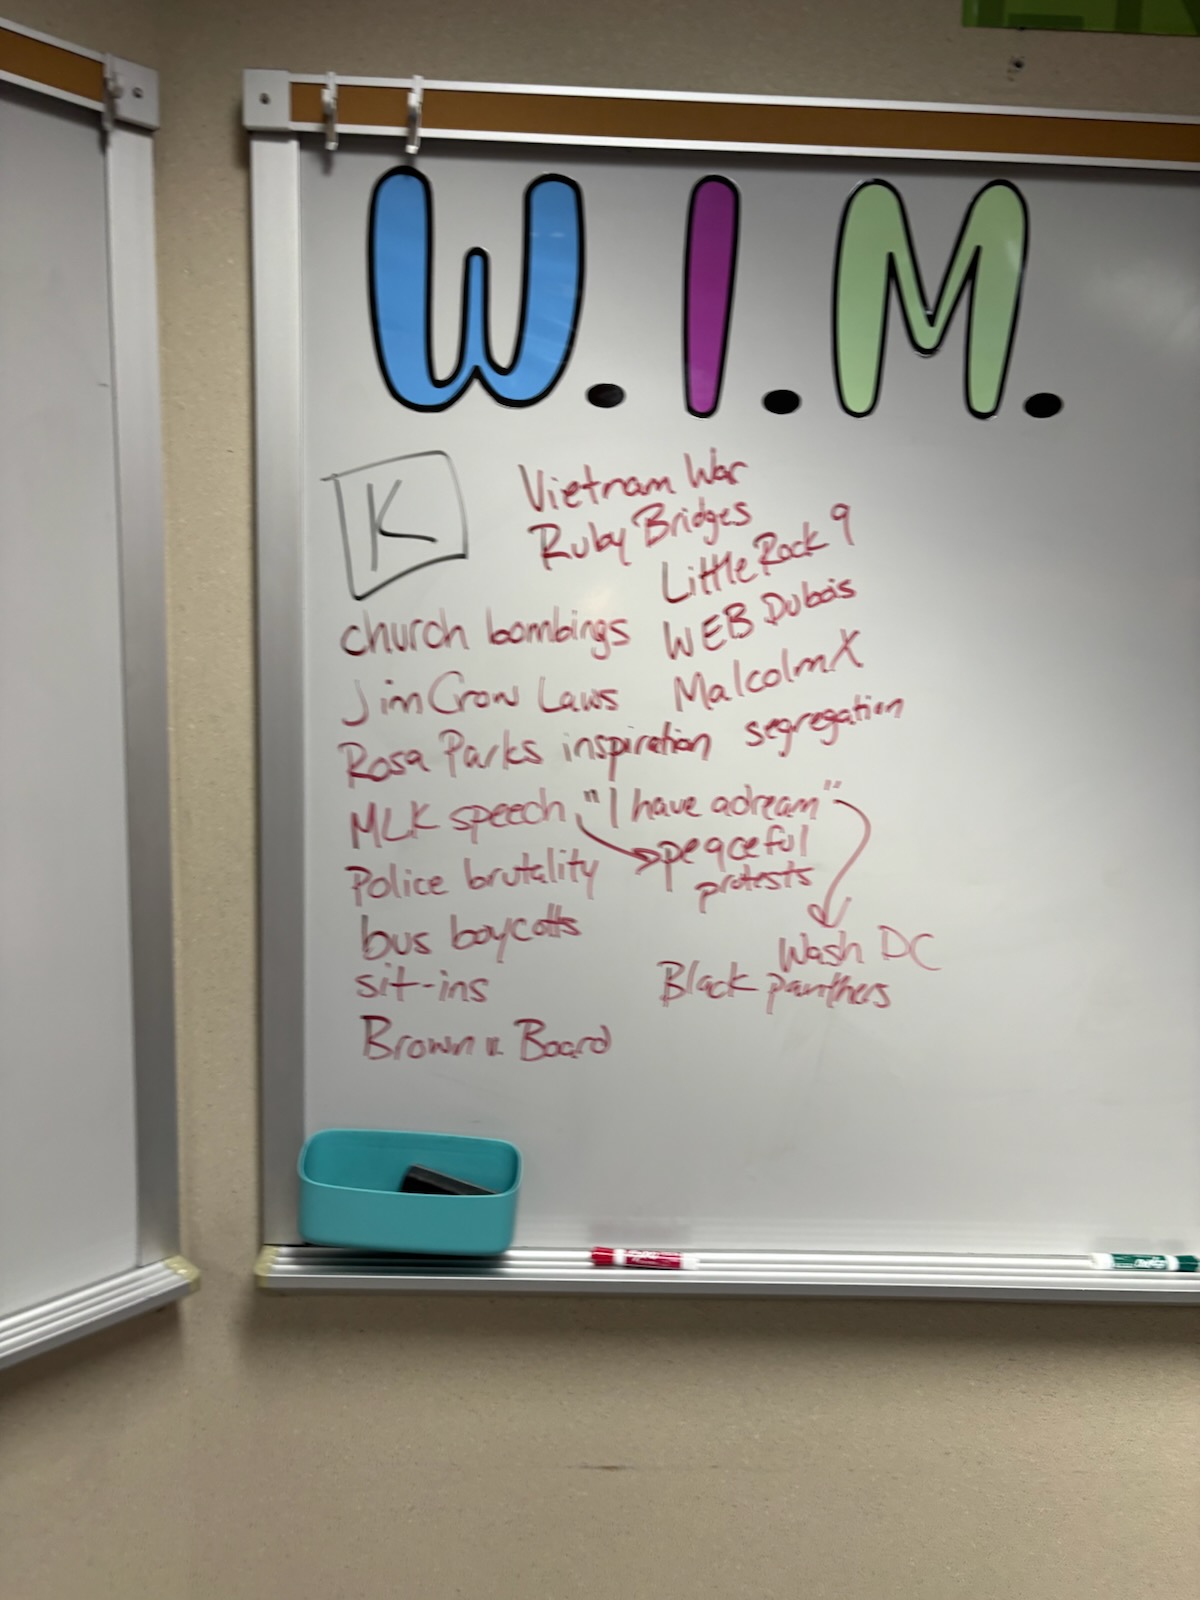 W.I.M.
K
Vietnam War
Ruby Bridges
Little Rock 9
church bombings
WEB Dubois
Jim Crow Laws
Malcolm X
Rosa Parks inspiration
segregation
MLK speech, "I have a dream"
peaceful
protests
Police brutality
bus boycotts
Wash DC
sit-ins
Black panthers
Brown v. Board